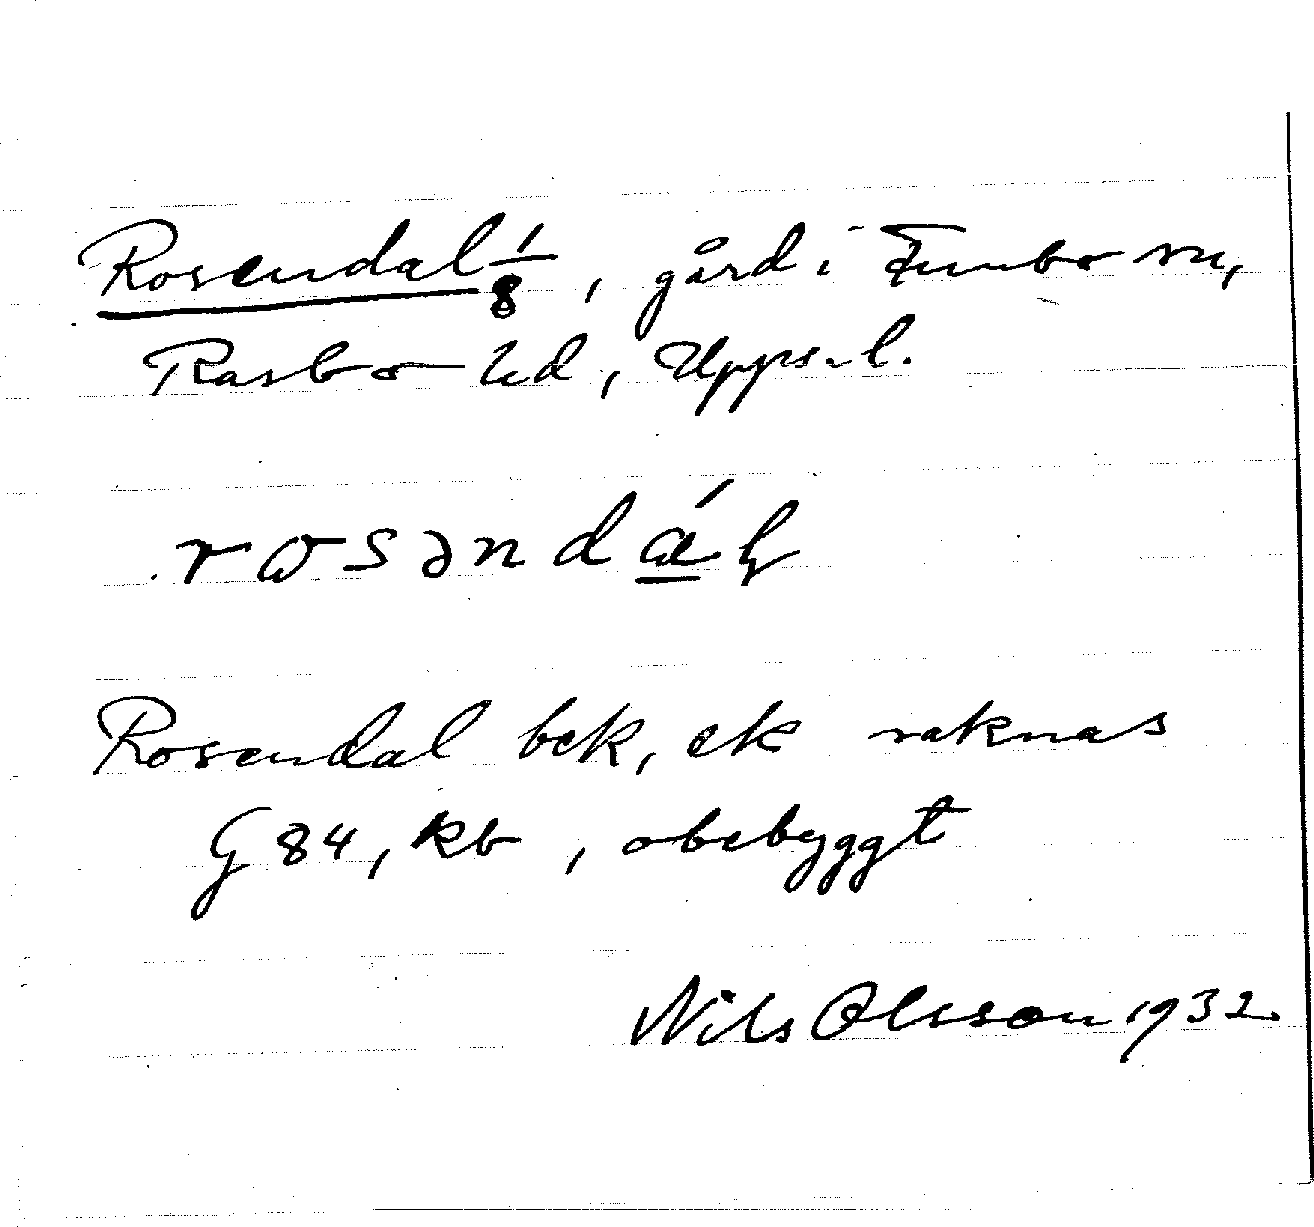 Rosendal 1/8, gård i Funbo sn,
Rasbo hd, Upps. l.
rosəndál
Rosendal bek, ek räknas
G 84, kb, obebyggt
Nils Olsson 1932.